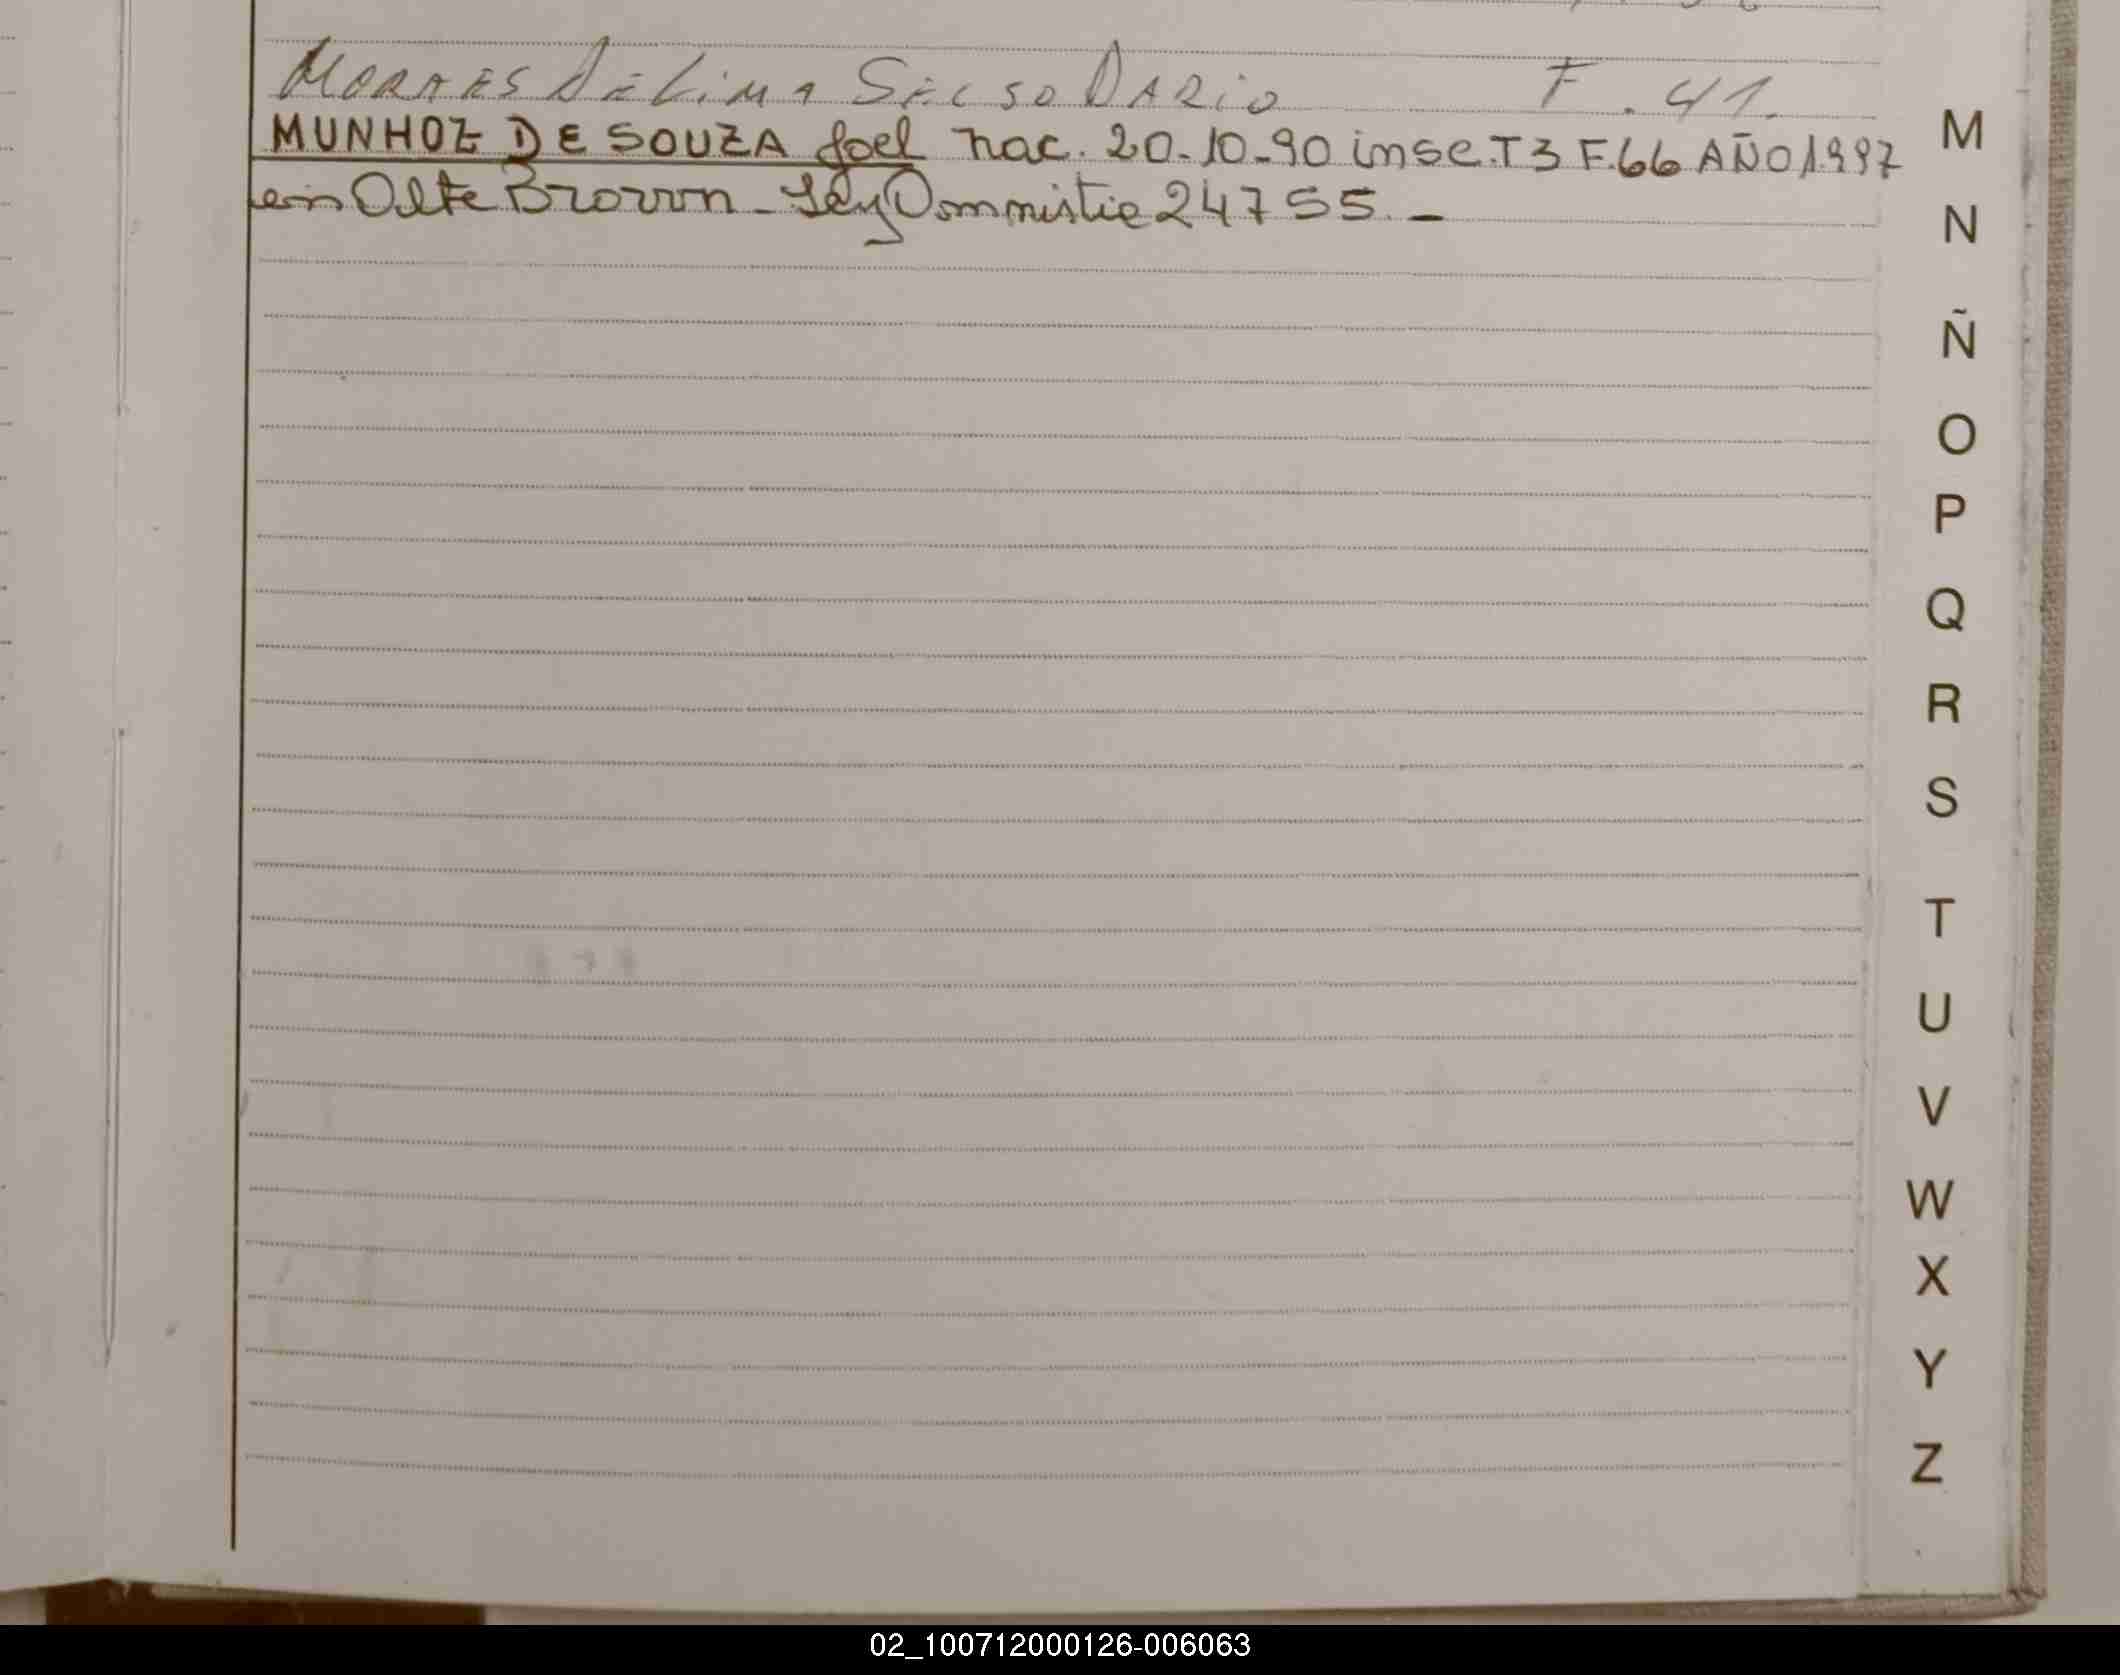 MORAES DE LIMA SELSO DARIO F. 41.
MUNHOZ DE SOUZA Joel nac. 20-10-90 insc. T3 F.66 AÑO 1997
en Alte Brown - Ley Amnistia 24755. -
M
N
Ñ
O
P
Q
R
S
T
U
V
W
X
Y
Z
02_100712000126-006063